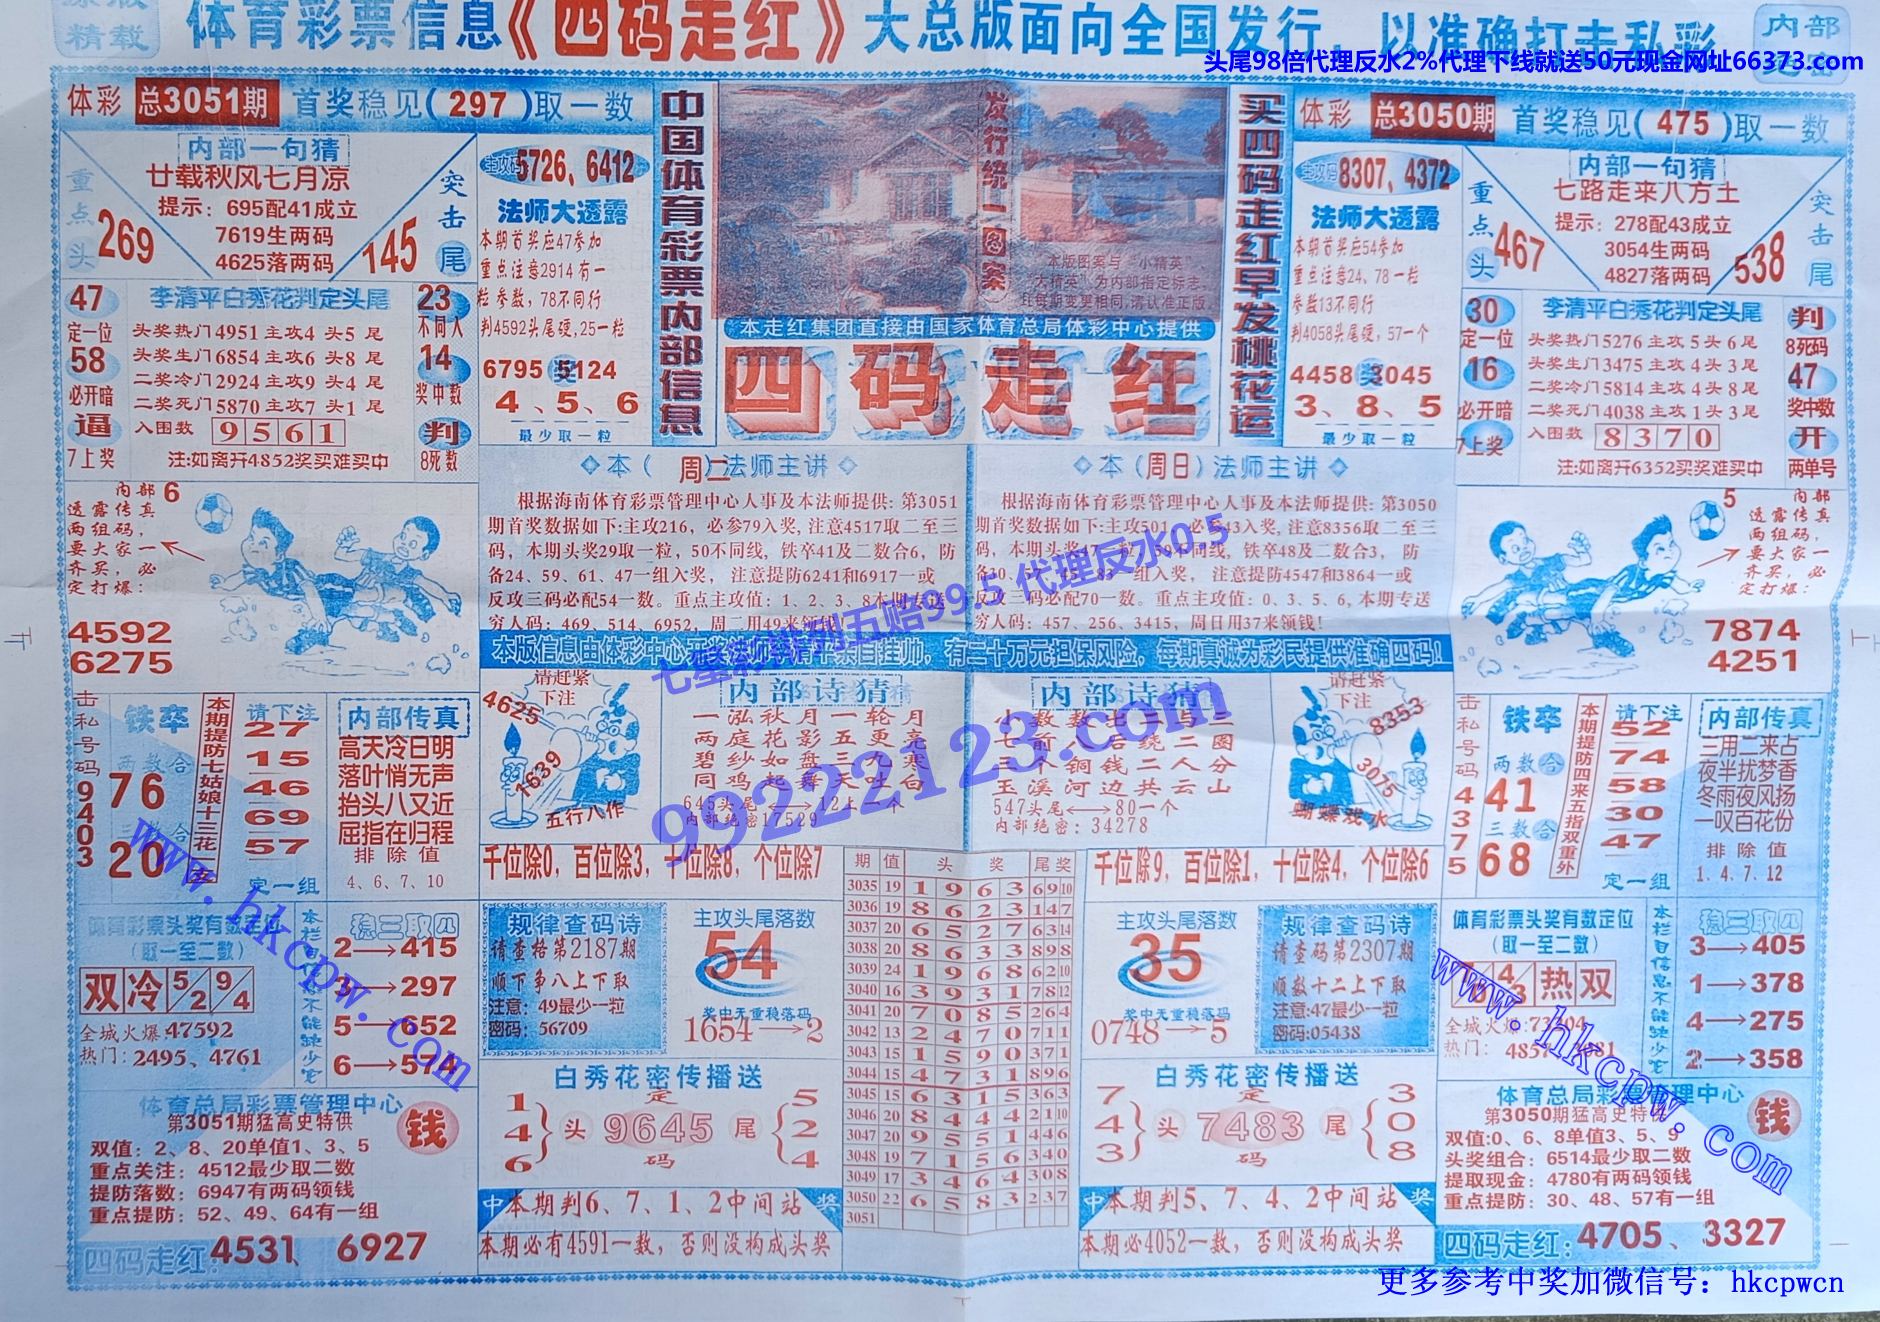 精载
体育彩票信息《四码走红》大总版面向全国发行，以准确打击私彩
内部
头尾98倍代理反水2%代理下线就送50元现金网址66373.com
体彩 总3051期 首奖稳见(297)取一数
内部一句猜
廿载秋风七月凉
提示：695配41成立
7619生两码
4625落两码
重点头
269
145
突击尾
47
定一位
58
必开暗
逼
7上奖
李清平白秀花判定头尾
头奖热门4951主攻4头5尾
头奖生门6854主攻6头8尾
二奖冷门2924主攻9头4尾
二奖死门5870主攻7头1尾
入围数 9561
注:如离开4852奖买难买中
23
不同人
14
奖中数
判
8死数
主攻码5726、6412
法师大透露
本期首奖应47参加
重点注意2914有一
粒参数，78不同行
判4592头尾硬,25一粒
6795奖5124
4、5、6
最少取一粒
中国体育彩票内部信息
发行统一图案
本版图案与“小精英”
大精英”为内部指定标志，
且每期变更相同,请认准正版
本走红集团直接由国家体育总局体彩中心提供
四码走红
买四码走红早发桃花运
体彩 总3050期 首奖稳见(475)取一数
主攻码8307、4372
法师大透露
本期首奖应54参加
重点注意24、78一粒
参数13不同行
判4058头尾硬,57一个
4458奖3045
3、8、5
最少取一粒
内部一句猜
七路走来八方土
提示：278配43成立
3054生两码
4827落两码
重点头
467
538
突击尾
30
定一位
16
必开暗
7上奖
李清平白秀花判定头尾
头奖热门5276主攻5头6尾
头奖生门3475主攻4头3尾
二奖冷门5814主攻4头8尾
二奖死门4038主攻1头3尾
入围数 8370
注:如离开6352买奖难买中
判
8死码
47
奖中数
开
两单号
内部6
透露传真
两组码，
要大家一
齐买，必
定打爆：
4592
6275
◇本（周二）法师主讲◇
根据海南体育彩票管理中心人事及本法师提供：第3051
期首奖数据如下:主攻216，必参79入奖,注意4517取二至三
码，本期头奖29取一粒，50不同线，铁卒41及二数合6，防
备24、59、61、47一组入奖， 注意提防6241和6917一或
反攻三码必配54一数。重点主攻值：1、2、3、8本期专送
穷人码：469、514、6952，周二用49来领钱
◇本（周日）法师主讲◇
根据海南体育彩票管理中心人事及本法师提供：第3050
期首奖数据如下:主攻501，必参43入奖,注意8356取二至三
码，本期头奖47取一粒，59不同线，铁卒48及二数合3， 防
备30、57、15、83一组入奖， 注意提防4547和3864一或
反攻三码必配70一数。重点主攻值：0、3、5、6,本期专送
穷人码：457、256、3415，周日用37来领钱！
本版信息由体彩中心开奖法师李清平亲自挂帅，有二十万元担保风险，每期真诚为彩民提供准确四码！
七星彩排列五赔99.5 代理反水0.5
99222123.com
5 内部
透露传真
两组码，
要大家一
齐买，必
定打爆：
7874
4251
击私号码94033
铁卒
两数合
76
三数合
20
本期提防七姑娘十三花女
请下注
27
15
46
69
57
定一组
内部传真
高天冷日明
落叶悄无声
抬头八又近
屈指在归程
排除值
4、6、7、10
请赶紧
下注
4625
1639
五行八作
内部诗猜
一泓秋月一轮月
两庭花影五更亮
碧纱如盘三九寒
同鸡起舞天吐白
645头尾⟵⟶12上一个
内部绝密17529
内部诗猜
三个铜钱二人分
玉溪河边共云山
547头尾⟵⟶80一个
内部绝密：34278
请赶紧
下注
8353
3075
蝴蝶戏水
击私号码43775
铁卒
两数合
41
三数合
68
本期提防四来五指双重外
请下注
52
74
58
30
47
定一组
内部传真
三用二来占
夜半扰梦香
冬雨夜风扬
一叹百花份
排除值
1、4、7、12
千位除0，百位除3，十位除8，个位除7
千位除9，百位除1，十位除4，个位除6
体育彩票头奖有数定位
（取一至二数）
双冷 5/2 9/4
全城火爆:47592
热门：2495、4761
本栏目信息不能缺少它
稳三取四
2→415
3→297
5→652
6→574
规律查码诗
请查格第2187期
顺下争八上下取
注意：49最少一粒
密码：56709
主攻头尾落数
54
奖中无重稳落码
1654→2
期 值 头奖 尾奖
3035 19 1 9 6 3 6 9 10
3036 19 8 6 2 3 1 4 7
3037 20 6 5 2 7 6 3 14
3038 20 8 6 3 3 8 9 8
3039 24 1 9 6 8 6 2 10
3040 16 3 9 3 1 7 8 12
3041 20 7 0 8 5 2 6 4
3042 13 2 4 7 0 7 1 1
3043 15 1 5 9 0 3 7 1
3044 15 4 7 3 1 8 9 6
3045 15 6 3 1 5 3 6 3
3046 20 8 4 4 4 2 1 10
3047 20 9 5 5 1 4 4 6
3048 19 7 1 5 6 3 4 0
3049 17 3 4 6 4 3 0 8
3050 22 6 5 8 3 2 3 7
3051
主攻头尾落数
35
奖中无重稳落码
0748→5
规律查码诗
请查码第2307期
顺数十二上下取
注意:47最少一粒
密码:05438
体育彩票头奖有数定位
（取一至二数）
热双
全城火爆:
热门：
本栏目信息不能缺少它
稳三取四
3→405
1→378
4→275
2→358
体育总局彩票管理中心
第3051期猛高史特供
钱
双值：2、8、20单值1、3、5
重点关注：4512最少取二数
提防落数：6947有两码领钱
重点提防：52、49、64有一组
四码走红:4531、6927
白秀花密传播送
1
4
6
头
定
9645
码
尾
5
2
4
中本期判6、7、1、2中间站奖
本期必有4591一数，否则没构成头奖
白秀花密传播送
7
4
3
头
定
7483
码
尾
3
0
8
中本期判5、7、4、2中间站奖
本期必4052一数，否则没构成头奖
体育总局彩票管理中心
第3050期猛高史特供
钱
双值:0、6、8单值3、5、9
头奖组合：6514最少取二数
提取现金：4780有两码领钱
重点提防：30、48、57有一组
四码走红:4705、3327
www.hkcpw.com
www.hkcpw.com
更多参考中奖加微信号：hkcpwcn